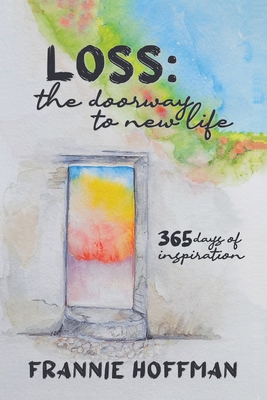 LOSS:
the doorway
to new life
365 days of
inspiration
FRANNIE HOFFMAN